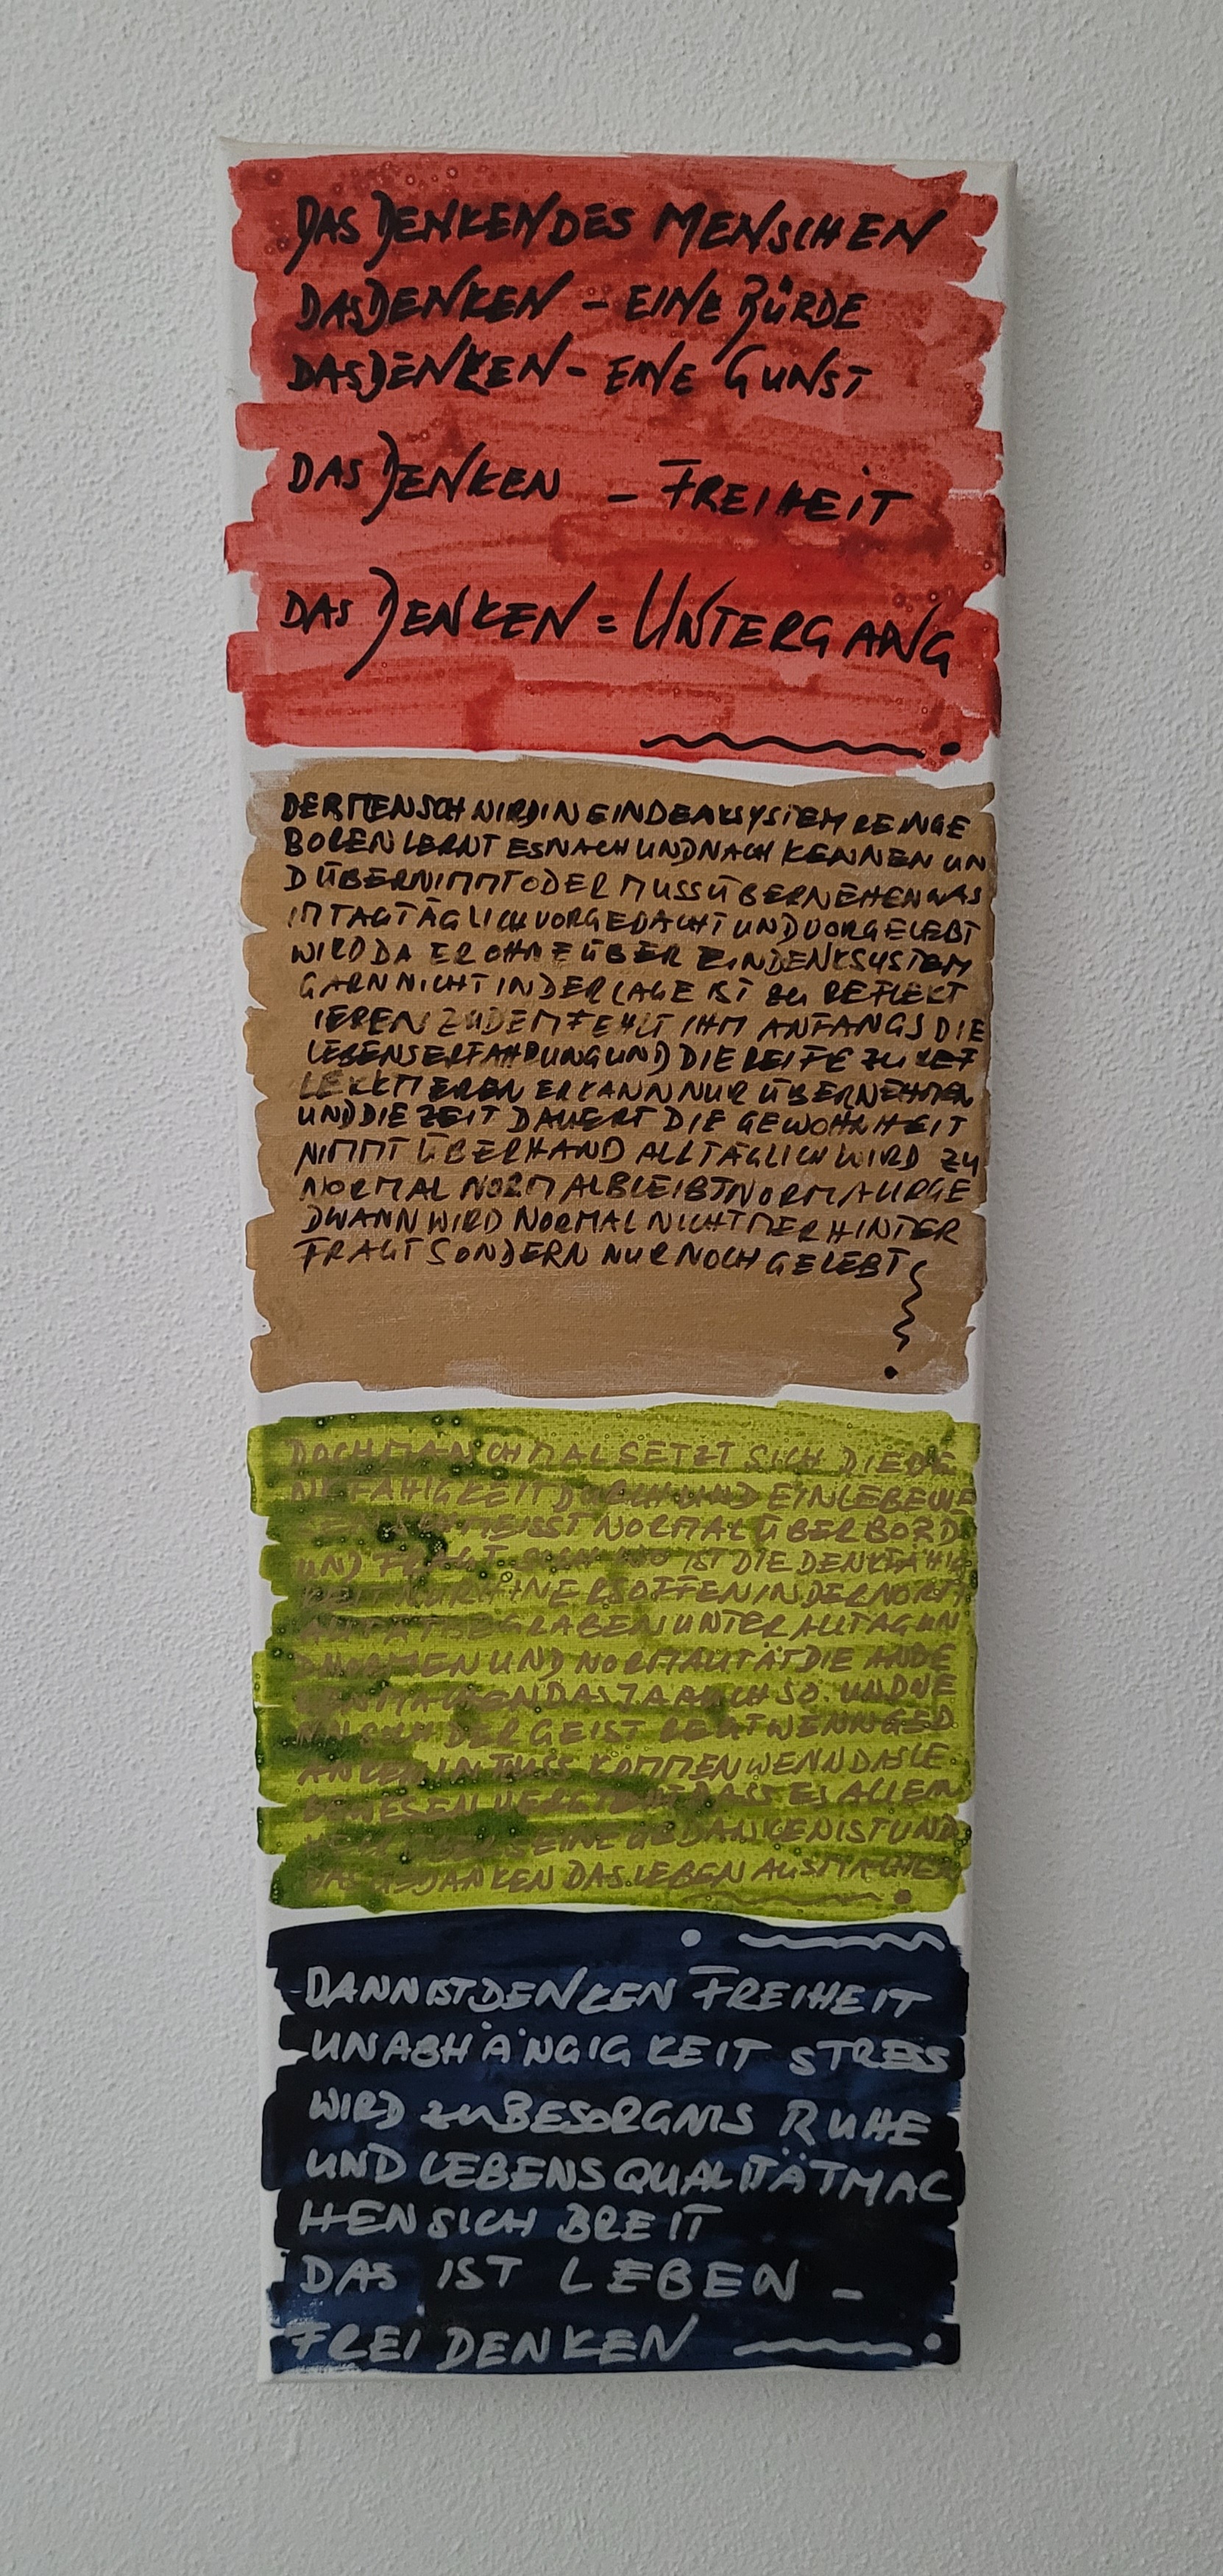 DAS DENKEN DES MENSCHEN
DAS DENKEN - EINE BÜRDE
DAS DENKEN - EINE GUNST
DAS DENKEN - FREIHEIT
DAS DENKEN = UNTERGANG
DER MENSCH WIRD IN EIN DENKSYSTEM REINGE
BOREN LERNT ES NACH UND NACH KENNEN UN
D ÜBERNIMMT ODER MUSS ÜBERNEHEN WAS
IM TAGTÄGLICH VORGEDACHT UND VORGELEBT
WIRD DA ER OHNE ÜBER EIN DENKSYSTEM
GARN NICHT IN DER LAGE IST ZU REFLEKT
IEREN ZUDEM FEHLT IHM ANFANGS DIE
LEBENSERFAHRUNG UND DIE REIFE ZU REF
LEKTIEREN ER KANN NUR ÜBERNEHMEN
UND DIE ZEIT DAUERT DIE GEWOHNHEIT
NIMMT ÜBERHAND ALLTÄGLICH WIRD ZU
NORMAL NORMAL BLEIBT NORMAL IRGE
DWANN WIRD NORMAL NICHT MER HINTER
FRAGT SONDERN NUR NOCH GELEBT
DOCH MANSCHMAL SETZT SICH DIE DE
NKFÄHIGKEIT DURCH UND EIN LEBEWE
SEN SCHMEISST NORMAL ÜBER BORD
UND FRAGT SICH WO IST DIE DENKFÄHIG
KEIT NUR HIN ERSOFFEN IN DER NORM
ALITÄT BEGRABEN UNTER ALLTAG UN
D NORMEN UND NORMALITÄT DIE ANDE
REN MACHEN DAS JA AUCH SO. UND WE
NN SICH DER GEIST REGT WENN GED
ANKEN IN FLUSS KOMMEN WENN DAS LE
BEWESEN VERSTEHT DASS ES ALLEIN
HERR ÜBER SEINE GEDANKEN IST UND
DAS GEDANKEN DAS LEBEN AUSMACHEN
DANN IST DENKEN FREIHEIT
UNABHÄNGIGKEIT STRESS
WIRD ZU BESORGNIS RUHE
UND LEBENSQUALITÄT MAC
HEN SICH BREIT
DAS IST LEBEN -
FREI DENKEN